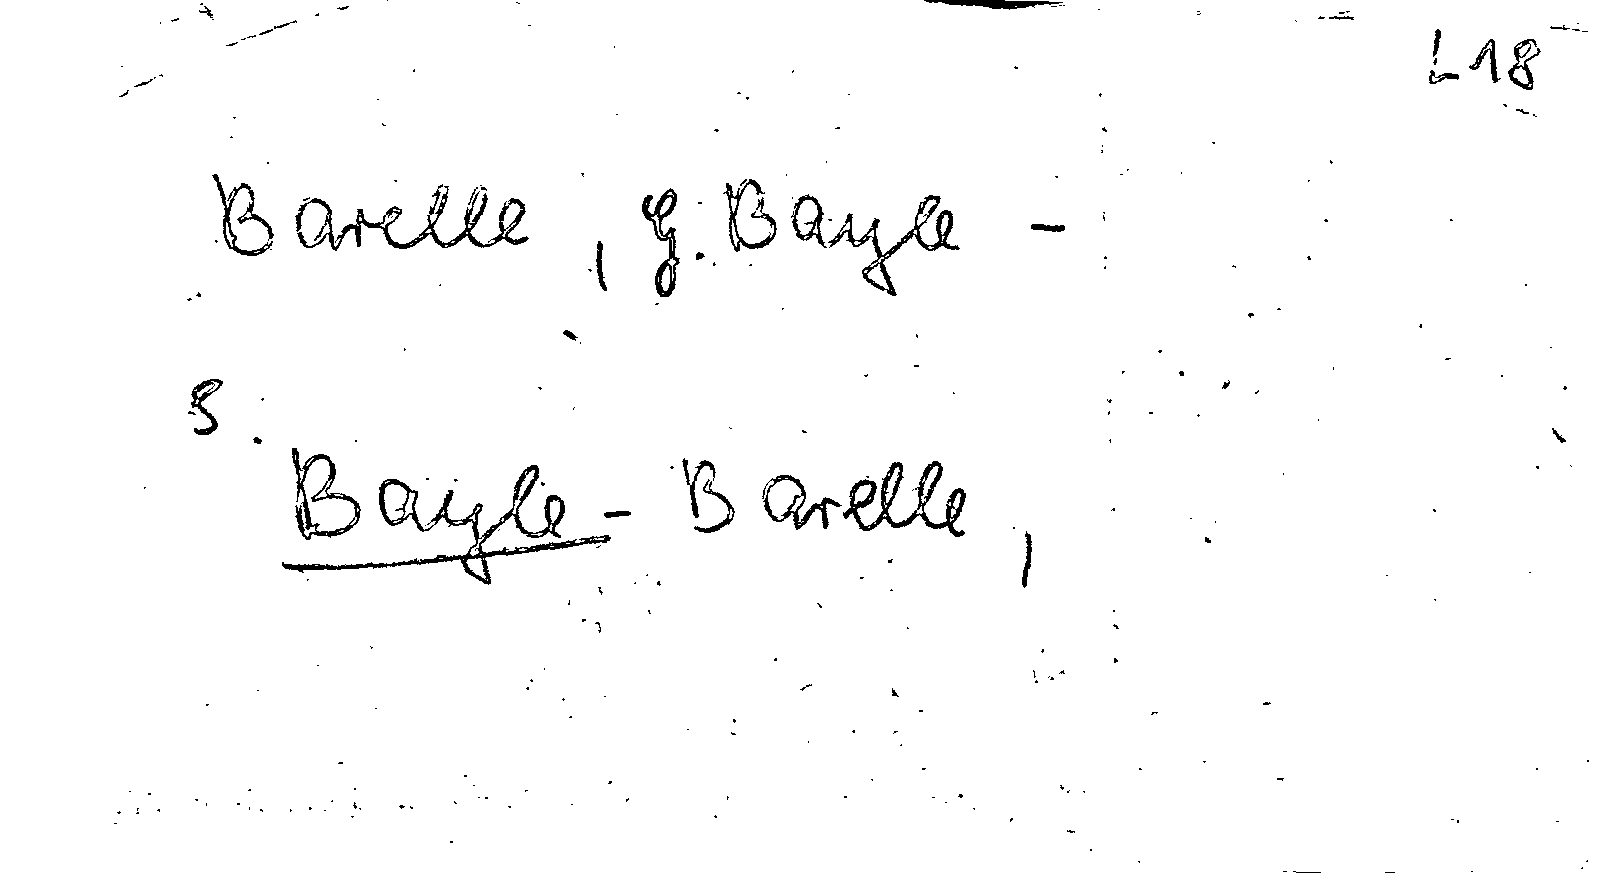 L 18
Barelle, G. Bayle -
s.
Bayle - Barelle,